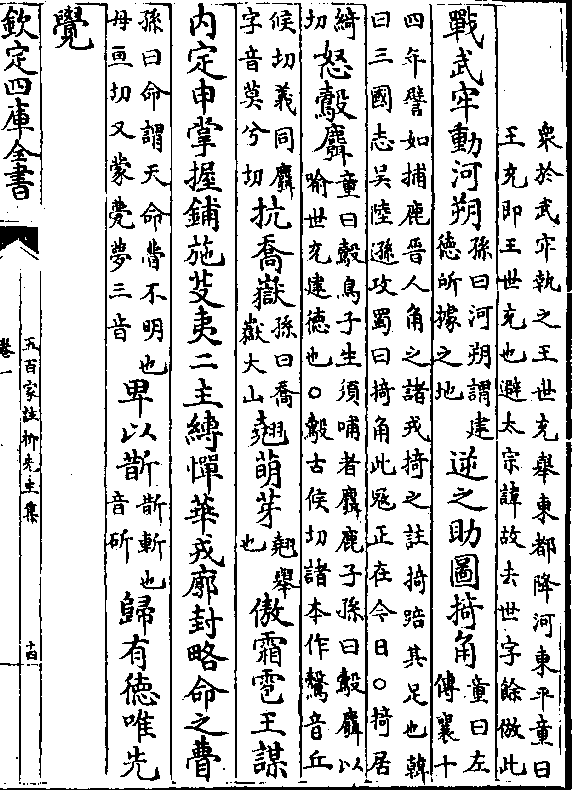 衆於武牢執之王世充舉東都降河東平童曰
王充即王世充也避太宗諱故去世字餘倣此
戰武牢動河朔孫曰河朔謂建德所據之地逆之助圖掎角童曰左傳襄十
四年譬如捕鹿晉人角之諸戎掎之註掎踣其足也韓
曰三國志吳陸遜攻蜀曰掎角此冦正在今日○掎居
綺切怒鷇麛童曰鷇鳥子生須哺者麛鹿子孫曰鷇麛以喻世充建德也○鷇古侯切諸本作鷔音丘
候切義同麛字音莫兮切抗喬嶽孫曰喬嶽大山翹萌芽翹舉也傲霜雹王謀
内定申掌握鋪施芟夷二主縛憚華戎廓封略命之瞢
孫曰命謂天命瞢不明也母亘切又蒙甍夢三音卑以斮斮斬也音斫歸有德唯先
覺
欽定四庫全書
五百家註柳先生集
卷一
十四